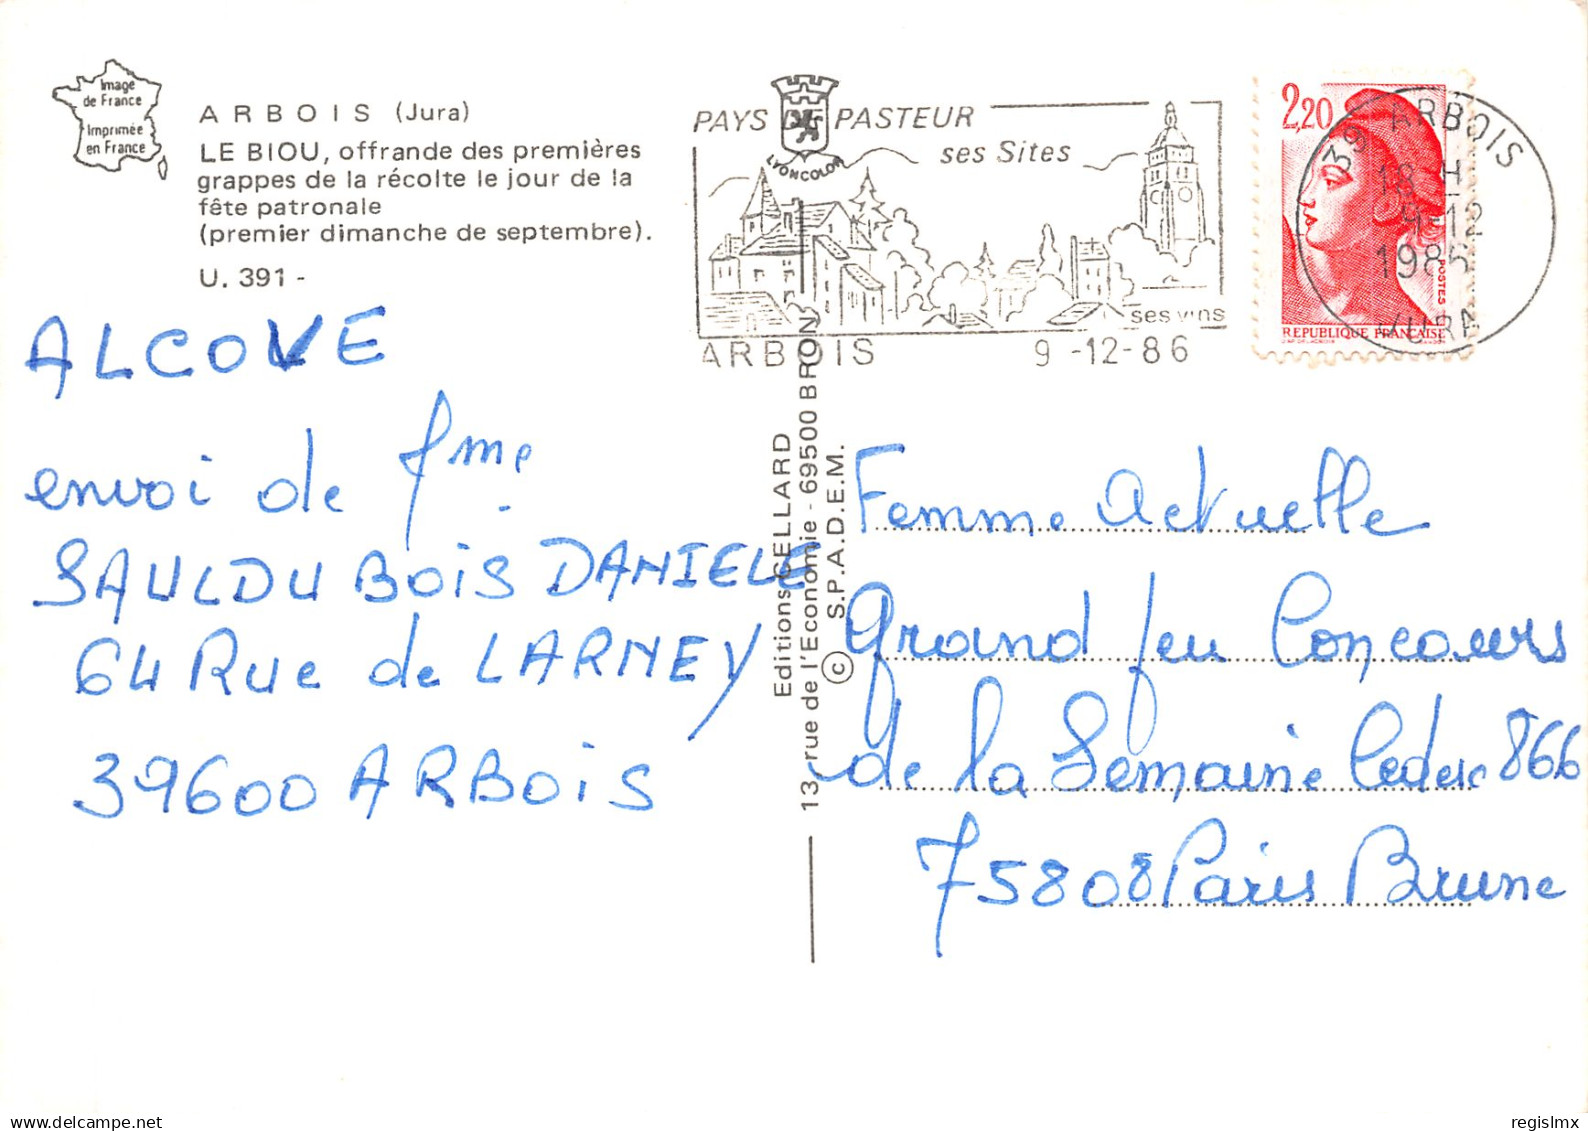 Image
de France
Imprimée
en France
ARBOIS (Jura)
LE BIOU, offrande des premières
grappes de la récolte le jour de la
fête patronale
(premier dimanche de septembre).
U. 391 -
ALCOVE
envoi de fme
SAULDUBOIS DANIELE
64 Rue de LARNEY
39600 ARBOIS
PAYS DE PASTEUR
ses Sites
LYONCOLOR
ses vins
ARBOIS 9-12-86
2,20
POSTES
REPUBLIQUE FRANÇAISE
39 ARBOIS
18 H
9-12
1986
JURA
Editions CELLARD
13, rue de l'Economie - 69500 BRON
© S.P.A.D.E.M.
Femme Actuelle
Grand Jeu Concours
de la Semaine Cedex 866
75808 Paris Brune
delcampe.net
regislmx